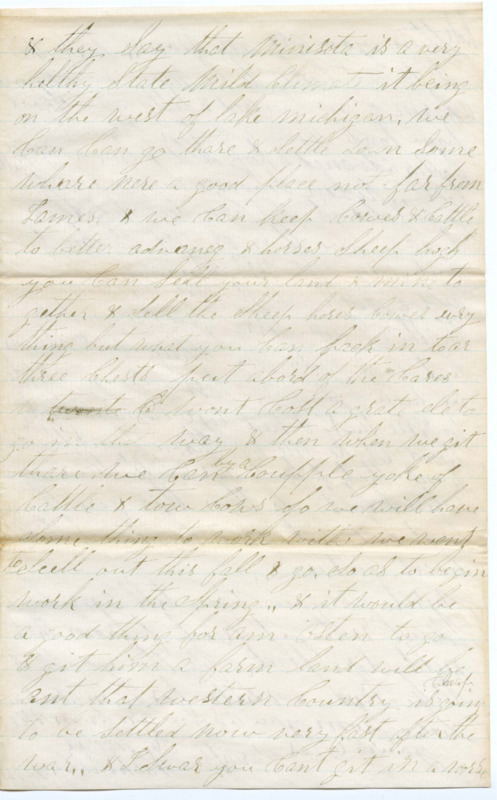 & they say that Minisota is a very
helthy State Mild Climate it being
on the west of lake michigan, we
Can Can go thare & Settle down Some
whare nere a good place not far from
& we Can Keep Cowes & Cattle
to better advaneg & horses Sheep
you Can Sell your land & mine to
gether & Sell the Sheep horses Cowes evry
thing but what you Can pack in
three Chests put abord of the Cares
& it wont Cost a grate del to
go in that way & then when we git
thare we Can by a Coupple yoke of
Cattle & tow Cows So we will have
Some thing to work with we want
to Scell out this fall & go. So as to begin
work in the Spring,, & it would be
a good thing for to go
& git him a farm land will be Cheap
ant that western Country is going
to be Settled now very fast after the
war,, & I Swar you Cant git in a